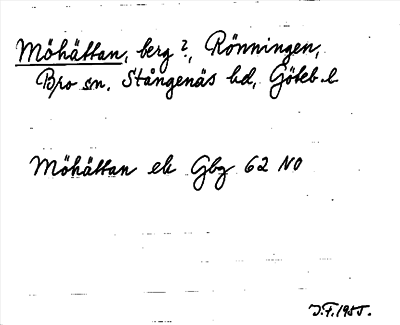 Möhättan, berg?, Rönningen,
Bro sn. Stångenäs hd, Göteb. l
Möhättan ek Gbg 62 NO
J.F. 1955.